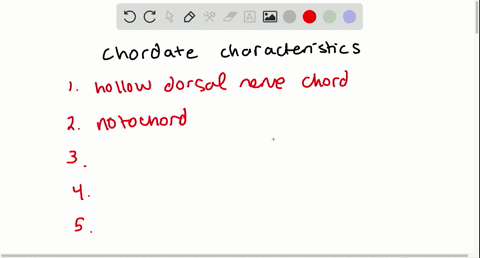 chordate characteristics
1. hollow dorsal nerve chord
2. notochord
3.
4.
5.